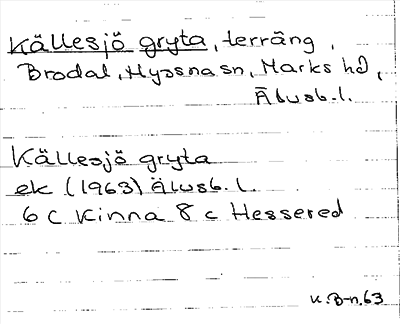 Källesjö gryta, terräng,
Brodal, Hyssna sn, Marks hd,
Älvsb. l.
Källesjö gryta
ek (1963) Älvsb. l.
6 C Kinna 8 c Hessered
u. B-n. 63